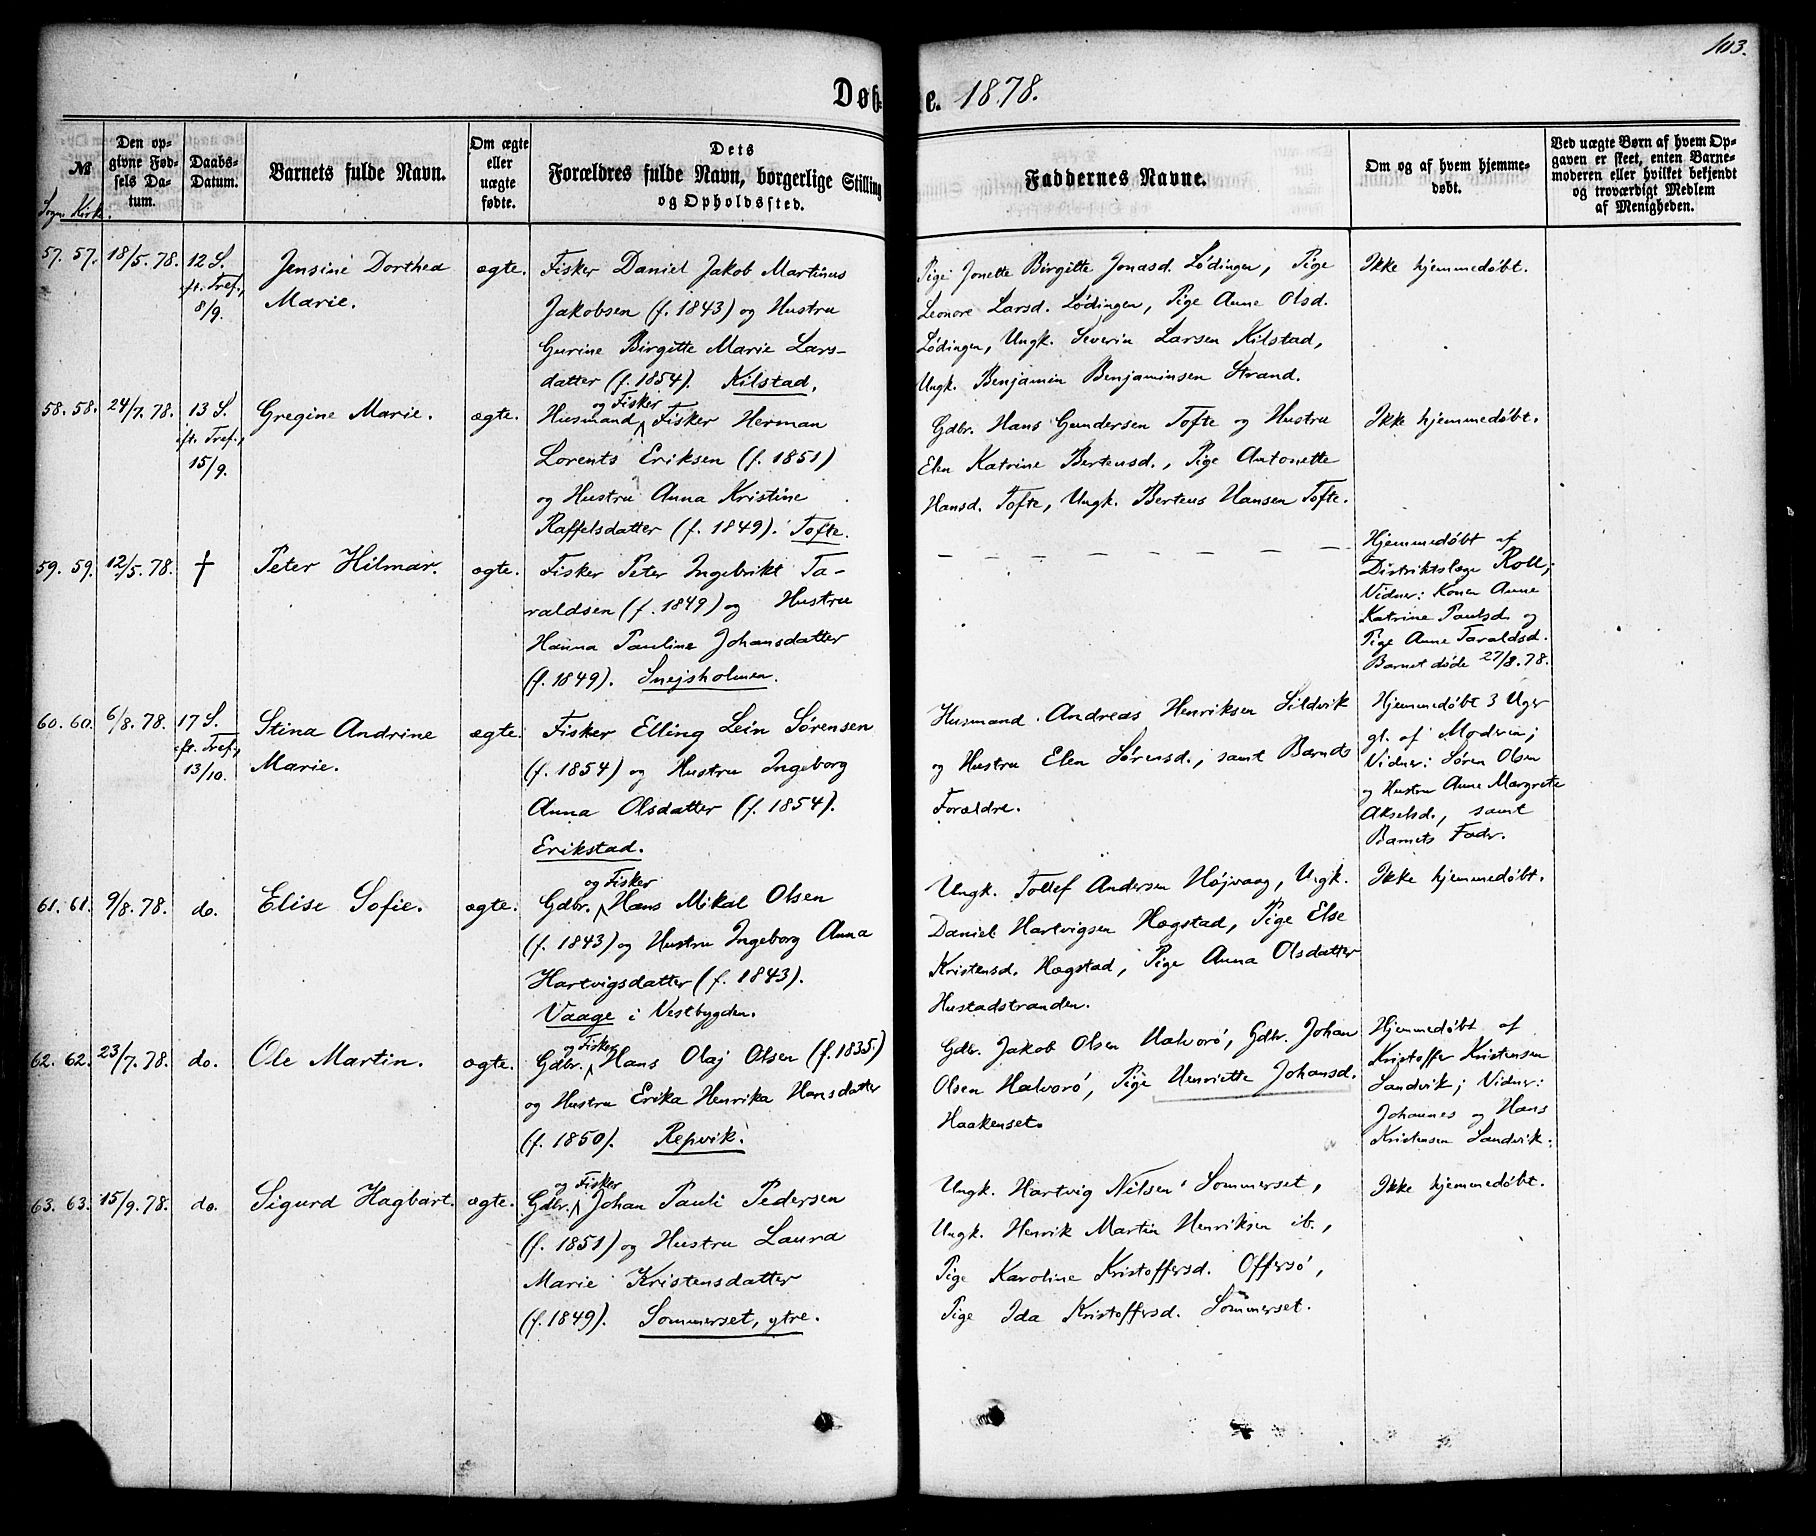 103.
Døbte. 1878.
№
Sogn. Kirk.
Den op-
givne Fød-
sels Da-
tum.
Daabs-
Datum.
Barnets fulde Navn.
Om ægte
eller
uægte
fødte.
Dets
Forældres fulde Navn, borgerlige Stilling
og Opholdssted.
Faddernes Navne.
Om og af hvem hjemme-
døbt.
Ved uægte Børn af hvem Op-
gaven er skeet, enten Barne-
moderen eller hvilket bekjendt
og troværdigt Medlem
af Menigheden.
57. 57. 18/5. 78.
12 S.
eft. Tref.,
8/9.
Jensine Dorthea
Marie.
ægte.
Fisker Daniel Jakob Martinus
Jakobsen (f. 1843) og Hustru
Gurine Birgitte Marie Lars-
datter (f. 1854). Kilstad.
Pige Jonette Birgitte Jonasd. Lødingen, Pige
Leonore Larsd. Lødingen, Pige Anne Olsd.
Lødingen, Ungk. Severin Larsen Kilstad,
Ungk. Benjamin Benjaminsen Strand.
Ikke hjemmedøbt.
58. 58. 24/7. 78.
13 S.
eft. Tref.,
15/9.
Gregine Marie.
ægte.
og Fisker
Husmand Fisker Herman
Lorents Eriksen (f. 1851)
og Hustru Anna Kristine
Raffelsdatter (f. 1849). Tofte.
Gdbr. Hans Gundersen Tofte og Hustru
Elen Katrine Bertensd., Pige Antonette
Hansd. Tofte, Ungk. Berteus Hansen Tofte.
Ikke hjemmedøbt.
59. 59. 12/5. 78.
†
Peter Hilmar.
ægte.
Fisker Peter Ingebrikt Ta-
raldsen (f. 1849) og Hustru
Hanna Pauline Johansdatter
(f. 1849). Snejsholmen.
– – – – – – – – –
Hjemmedøbt af
Distriktslæge Roll;
Vidner: Konen Anne
Katrine Paulsd. og
Pige Anne Taraldsd.
Barnet døde 27/8. 78.
60. 60. 6/8. 78.
17 S.
eft. Tref.,
13/10.
Stina Andrine
Marie.
ægte.
Fisker Elling Lein Sørensen
(f. 1854) og Hustru Ingeborg
Anna Olsdatter (f. 1854).
Erikstad.
Husmand Andreas Henriksen Sildvik
og Hustru Elen Sørensd., samt Barnets
Forældre.
Hjemmedøbt 3 Uger
gl. af Moderen;
Vidner: Søren Olsen
og Hustru Anne Margrete
Akselsd., samt
Barnets Fader.
61. 61. 9/8. 78.
do.
Elise Sofie.
ægte.
og Fisker
Gdbr. Hans Mikal Olsen
(f. 1843) og Hustru Ingeborg Anna
Hartvigsdatter (f. 1843).
Vaage i Vestbygden.
Ungk. Tollef Andersen Højvaag, Ungk.
Daniel Hartvigsen Hægstad, Pige Else
Kristensd. Hægstad, Pige Anna Olsdatter
Hustadstranden.
Ikke hjemmedøbt.
62. 62. 23/7. 78.
do.
Ole Martin.
ægte.
og Fisker
Gdbr. Hans Olaj Olsen (f. 1835)
og Hustru Erika Henrika Hansdatter
(f. 1850). Repvik.
Gdbr. Jakob Olsen Halvorø, Gdbr. Johan
Olsen Halvorø, Pige Henriette Johansd.
Haakenset.
Hjemmedøbt af
Kristoffer Kristensen
Sandvik; Vidner:
Johannes og Hans
Kristensen Sandvik.
63. 63. 15/9. 78.
do.
Sigurd Hagbart.
ægte.
og Fisker
Gdbr. Johan Pauli Pedersen
(f. 1851) og Hustru Laura
Marie Kristensdatter
(f. 1849). Sommerset, ytre.
Ungk. Hartvig Nilsen Sommerset,
Ungk. Henrik Martin Henriksen ib.,
Pige Karoline Kristoffersd. Offersø,
Pige Ida Kristoffersd. Sommerset.
Ikke hjemmedøbt.